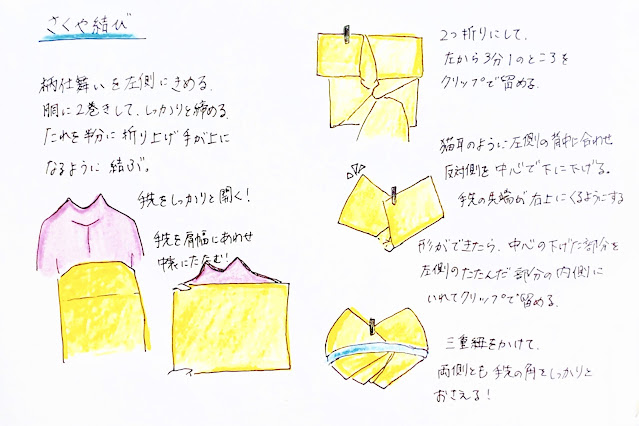 さくや結び
柄仕舞いを左側にきめる.
胴に2巻きして、しっかりと締める.
たれを半分に折り上げ手が上に
なるように結ぶ。
手先をしっかりと開く!
手先を肩幅にあわせ
中表にたたむ!
2つ折りにして、
左から3分1のところを
クリップで留める.
猫耳のように左側の背中に合わせ
反対側を中心で下に下げる。
手先の先端が右上にくるようにする
形ができたら、中心の下げた部分を
左側のたたんだ部分の内側に
いれてクリップで留める.
三重紐をかけて、
両側とも手先の角をしっかりと
おさえる!